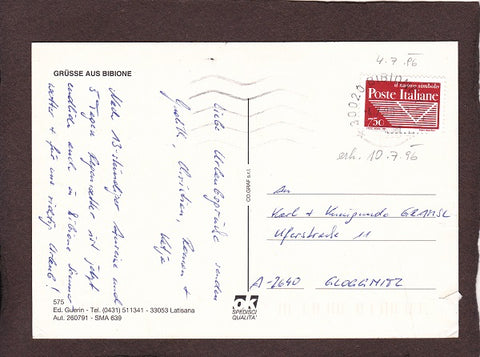 GRÜSSE AUS BIBIONE
Nach 13-stündiger Anreise und
5 Tagen Regenwetter ist jetzt
endlich auch in Bibione Sonne
wetter + für uns richtig Urlaub!
Liebe Urlaubsgrüße senden
Christian, Roman +
Katja
575
Ed. Guerin - Tel. (0431) 511341 - 33053 Latisana
Aut. 260791 - SMA 639
CO.GRAF s.r.l.
OK
SPEDISCI
QUALITA'
4.7.96
30020 BIBIONE
il nuovo simbolo
Poste Italiane
750
erh. 10.7.96
An
Karl + Kunigunde GRANSL
Uferstraße 11
A-2640 GLOGGNITZ